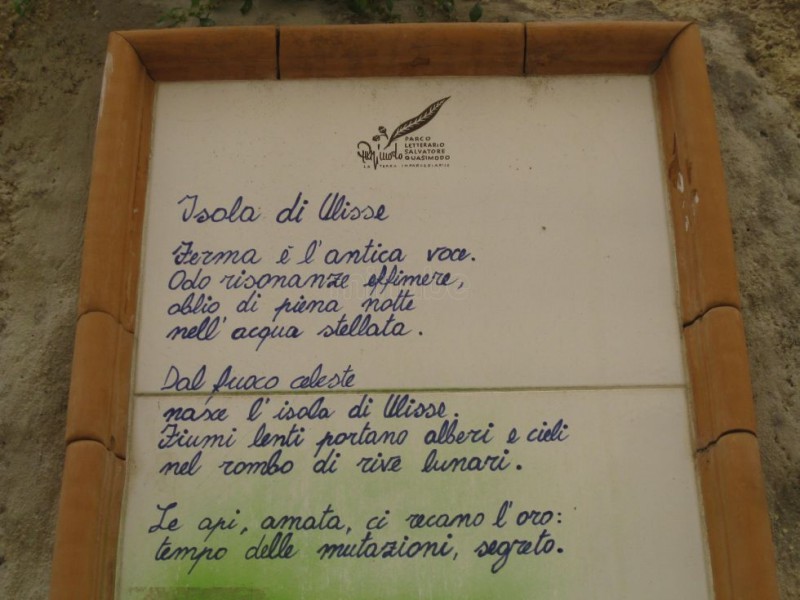 Quasimodo
PARCO
LETTERARIO
SALVATORE
QUASIMODO
LA TERRA IMPAREGGIABILE
Isola di Ulisse
Ferma è l'antica voce.
Odo risonanze effimere,
oblio di piena notte
nell'acqua stellata.
Dal fuoco celeste
nasce l'isola di Ulisse.
Fiumi lenti portano alberi e cieli
nel rombo di rive lunari.
Le api, amata, ci recano l'oro:
tempo delle mutazioni, segreto.